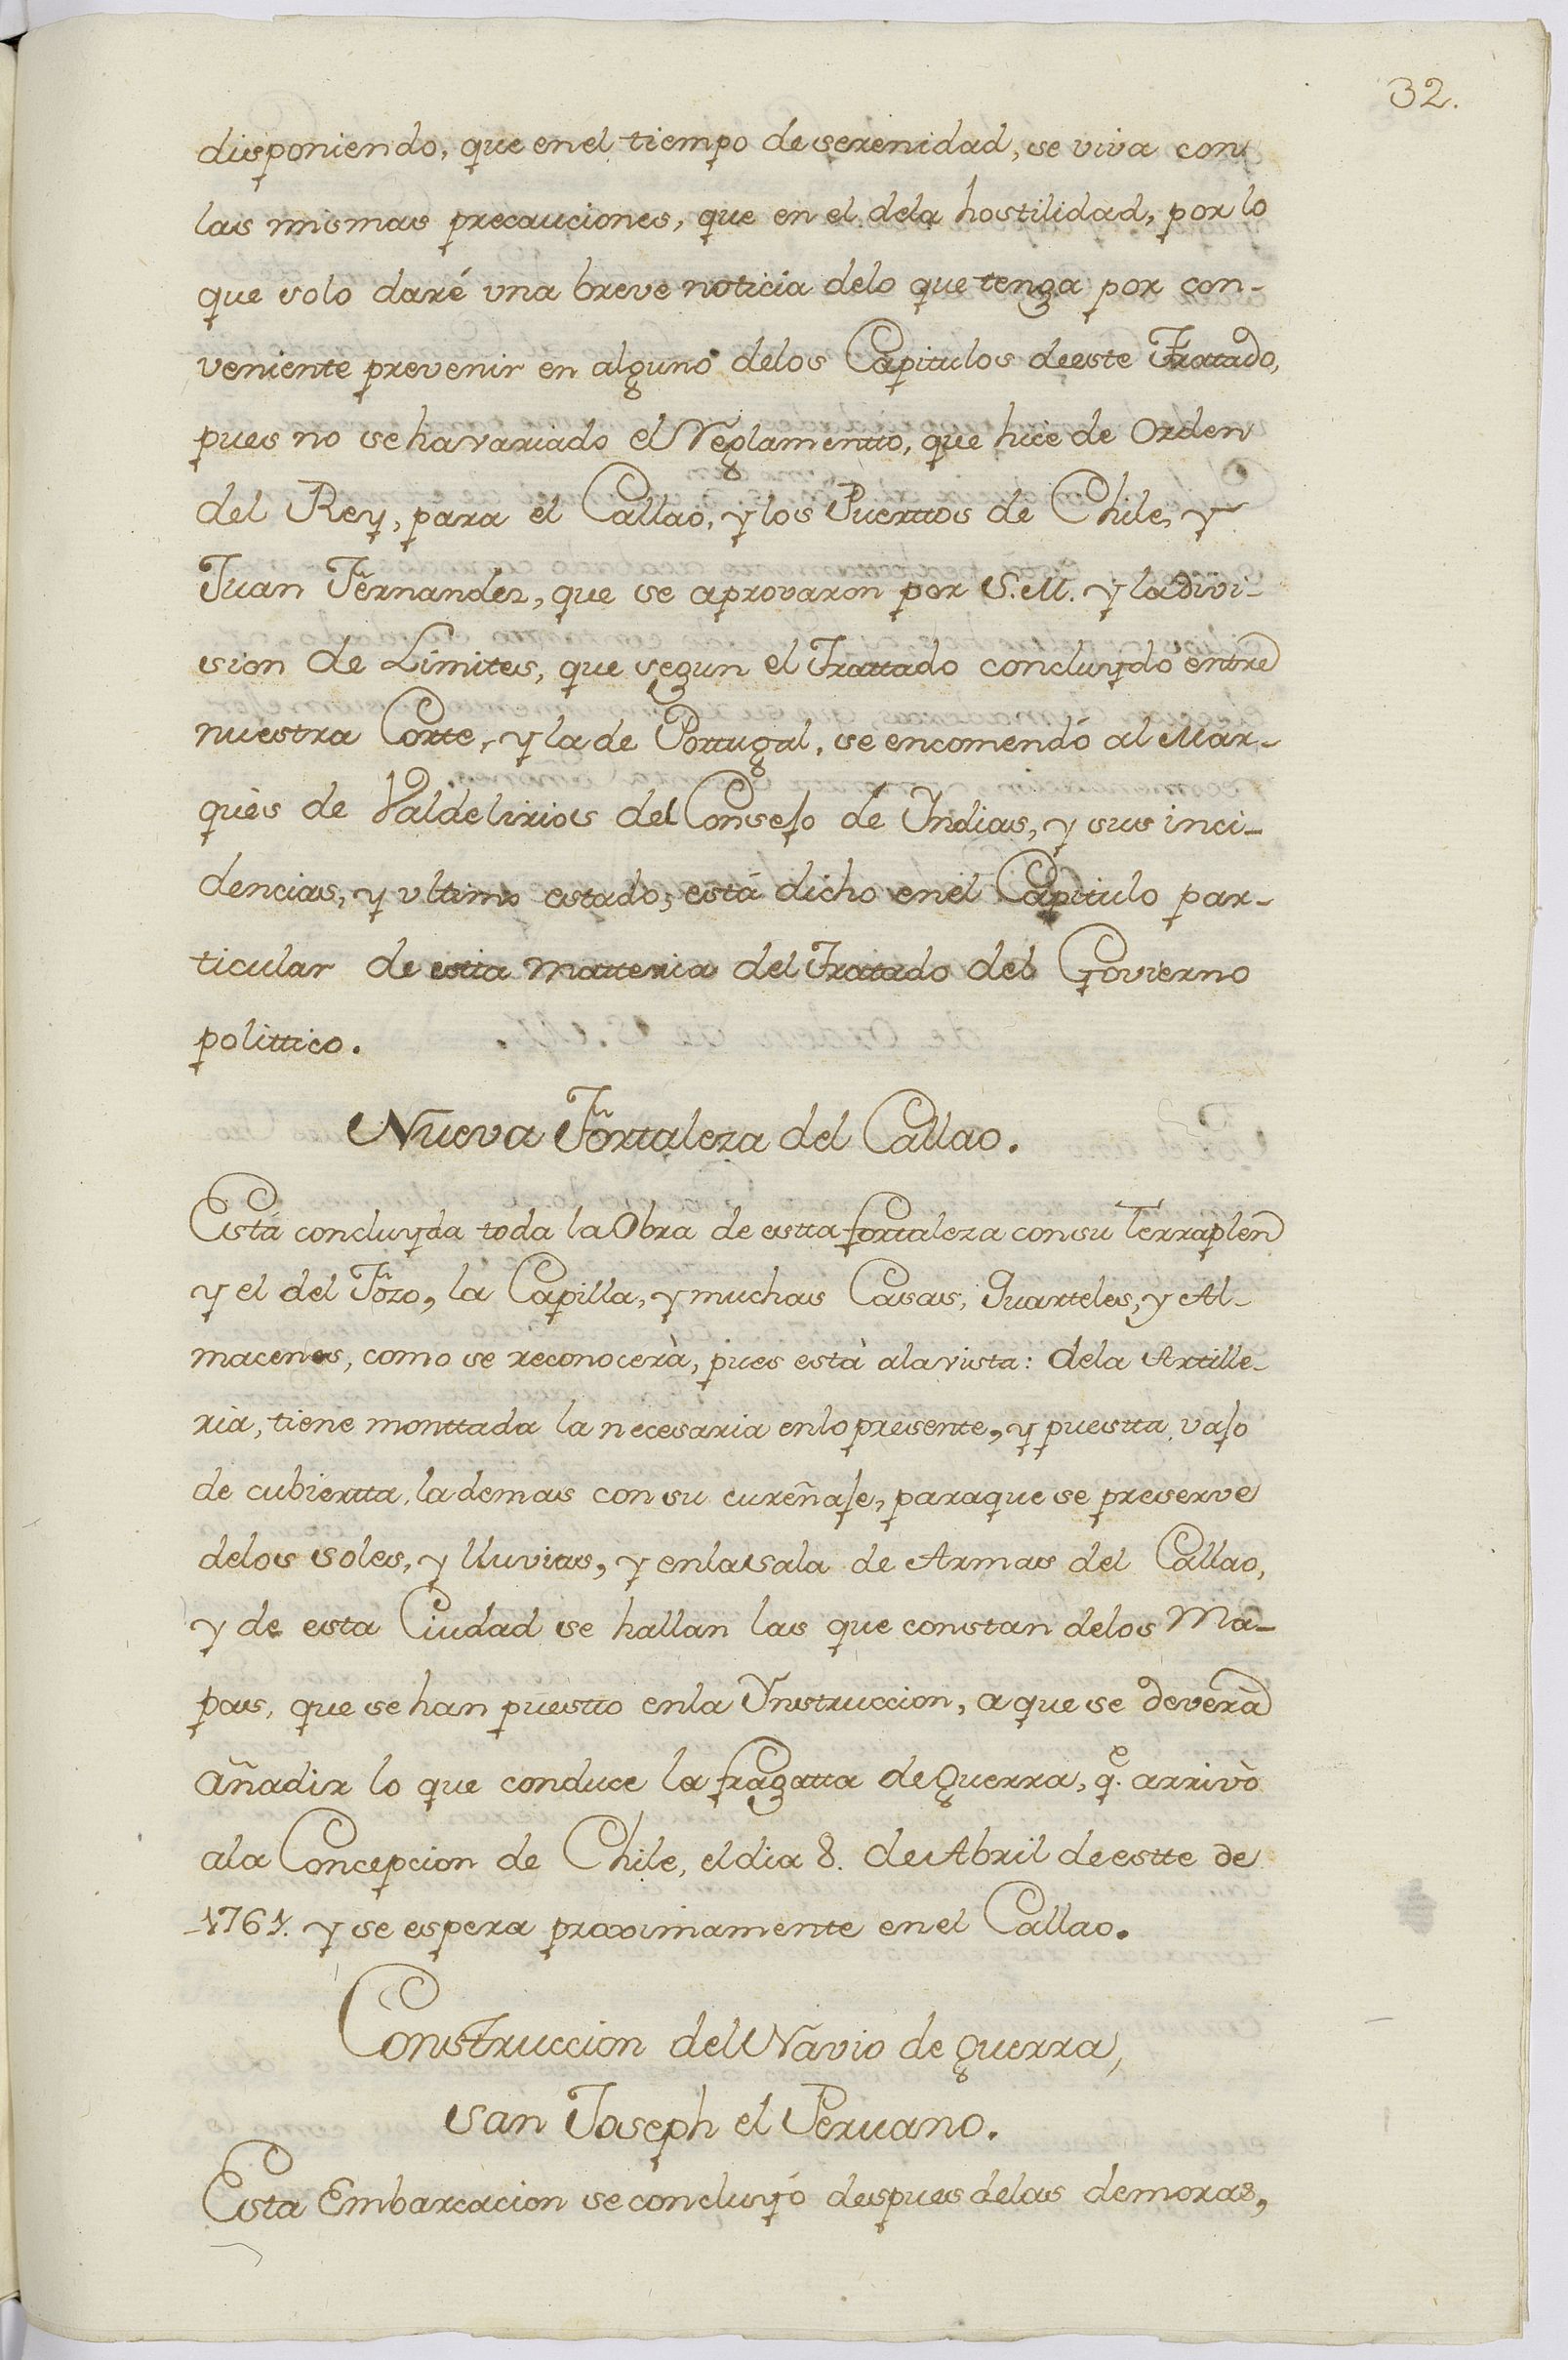 32.
disponiendo, que enel tiempo de serenidad, se viva con
las mismas precauciones, que en el dela hostilidad, por lo
que solo daré vna breve noticia delo que tenga por con-
veniente prevenir en alguno delos Capitulos deeste Tratado,
pues no se ha variado el Reglamentto, que hice de Orden
del Rey, para el Callao, y los Puerttos de Chile, y
Juan Fernandez, que se aprovaron por S.M. y la divi-
sion de Límites, que segun el Trattado concluydo entre
nuestra Corte, y la de Portugal, se encomendó al Mar-
qués de Valdelirios del Consejo de Yndias, y sus inci-
dencias, y vltimo estado, está dicho enel Capitulo par-
ticular de estta matteria del Tratado del Govierno
polittico.
Nueva Forttaleza del Callao.
Está concluyda toda la Obra de estta forttaleza con su Terraplen
y el del Fozo, la Capilla, y muchas Casas, Quarteles, y Al-
macenes, como se reconocerà, pues està ala vista: dela Artille-
ria, tiene monttada la necesaria enlo presente, y puestta vajo
de cubiertta, la demas con su cureñaje, paraque se preserve
delos soles, y lluvias, y enla sala de Armas del Callao,
y de esta Ciudad se hallan las que constan delos Ma-
pas, que se han puestto enla Ynstruccion, a que se deverà
añadir lo que conduce la fragatta de Guerra, q.e arrivò
ala Concepcion de Chile, el dia 8. de Abril de estte de
1761. y se espera proximamente en el Callao.
Construccion del Navio de guerra,
San Joseph el Peruano.
Esta Embarcacion se concluyó despues delas demoras,